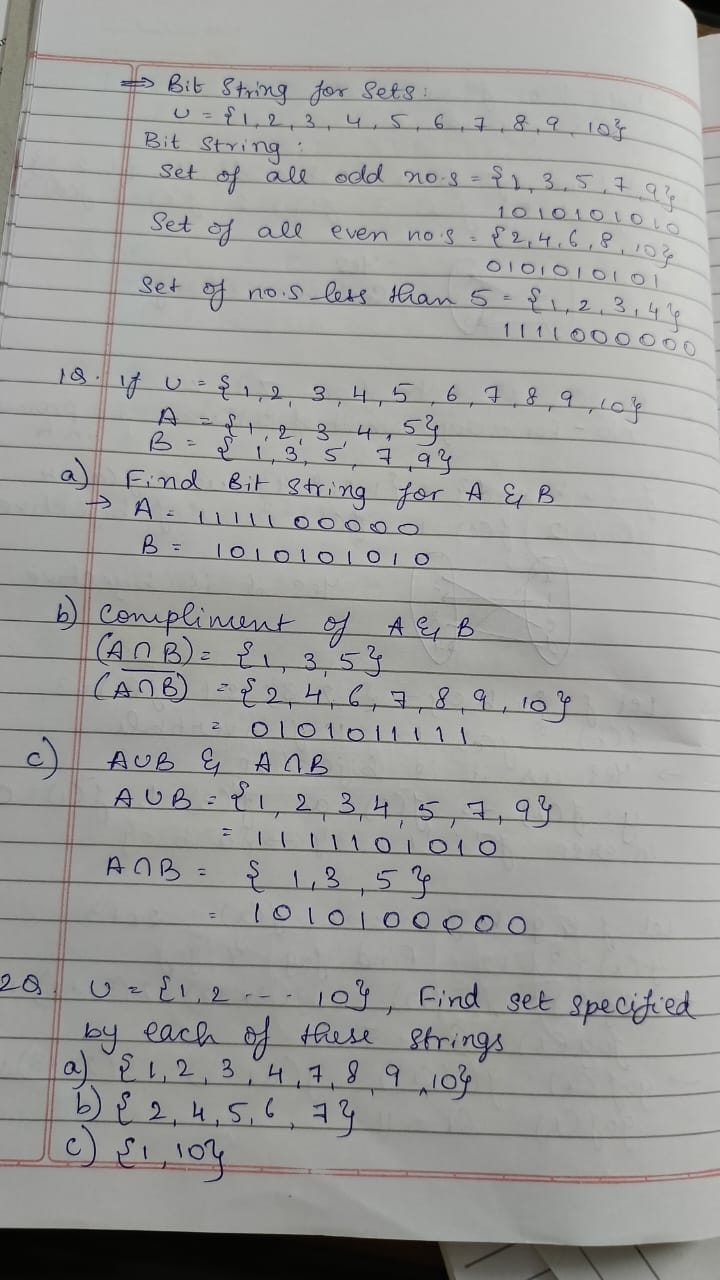 ⇒ Bit String for Sets:
U = {1, 2, 3, 4, 5, 6, 7, 8, 9, 10}
Bit String:
Set of all odd no.s = {1, 3, 5, 7, 9}
1010101010
Set of all even no.s = {2, 4, 6, 8, 10}
0101010101
Set of no.s less than 5 = {1, 2, 3, 4}
1111000000
1Q. If U = {1, 2, 3, 4, 5, 6, 7, 8, 9, 10}
A = {1, 2, 3, 4, 5}
B = {1, 3, 5, 7, 9}
a) Find Bit String for A & B
→ A = 1111100000
B = 1010101010
b) Compliment of A & B
(A∩B) = {1, 3, 5}
(A̅∩̅B̅) = {2, 4, 6, 7, 8, 9, 10}
= 0101011111
c) A∪B & A∩B
A∪B = {1, 2, 3, 4, 5, 7, 9}
= 1111101010
A∩B = {1, 3, 5}
= 1010100000
2Q. U = {1, 2 ... 10}, Find set specified
by each of these strings
a) {1, 2, 3, 4, 7, 8, 9, 10}
b) {2, 4, 5, 6, 7}
c) {1, 10}